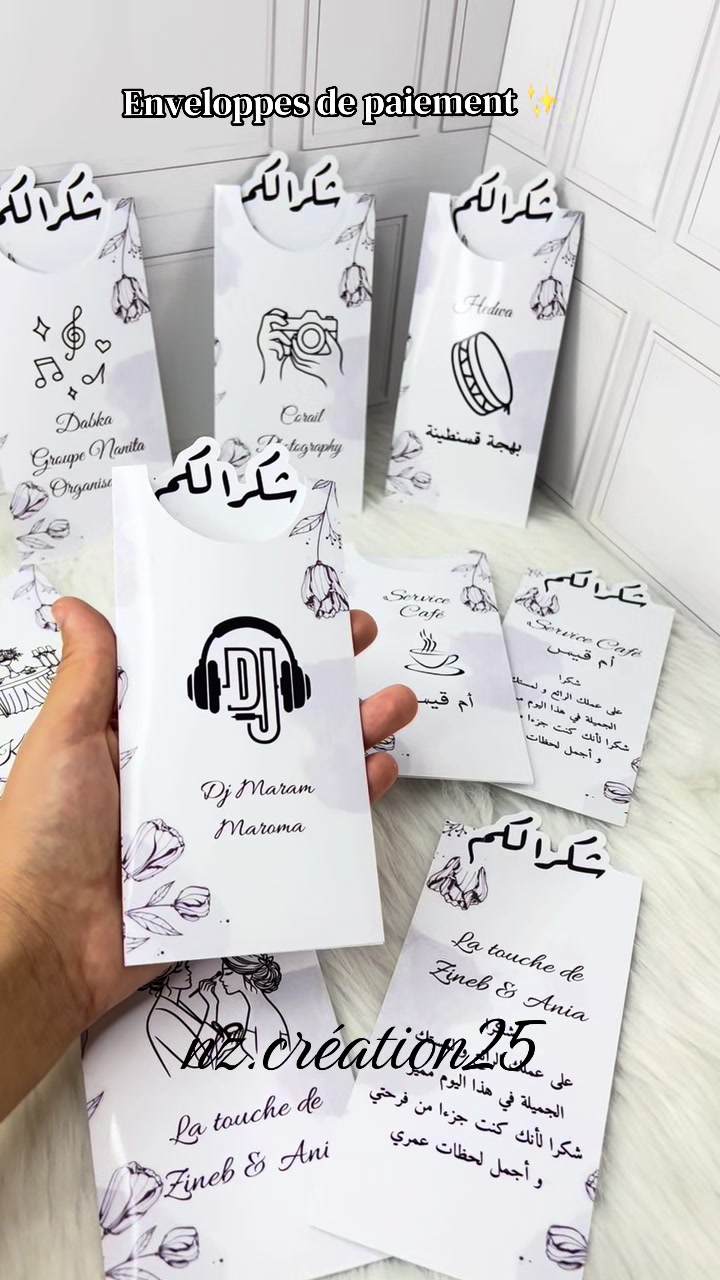 Enveloppes de paiement ✨
شكرا لكم
شكرا لكم
شكرا لكم
Dabka
Groupe Nanita
Corail
Photography
Hedwa
بهجة قسنطينة
شكرا لكم
DJ
Dj Maram
Maroma
Service
Café
أم قيس
شكرا لكم
Service Café
أم قيس
شكرا
على عملك الرائع و لمستك
الجميلة في هذا اليوم
شكرا لأنك كنت جزءا من
و أجمل لحظات
شكرا لكم
La touche de
Zineb & Ania
شكرا
على عملك الرائع
الجميلة في هذا اليوم مميز
شكرا لأنك كنت جزءا من فرحتي
و أجمل لحظات عمري
nz.création25
La touche de
Zineb & Ani